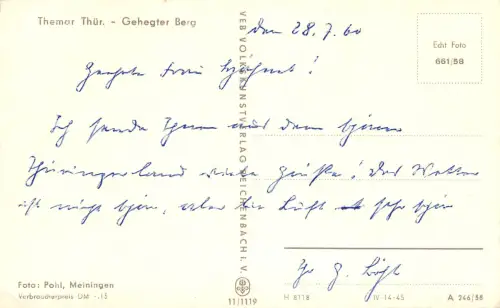 Themar Thür. - Gehegter Berg
den 28.7.60
Echt Foto
661/58
Geehrte Frau
Ich sende Ihnen aus dem schönen
Thüringerland viele Grüße! Das Wetter
ist nicht schön, aber die Luft sehr schön
Ihr G.
VEB VOLKSKUNSTVERLAG REICHENBACH i. V.
Foto: Pohl, Meiningen
Verbraucherpreis DM -.15
11/1119
H 8118
IV-14-45
A 246/58